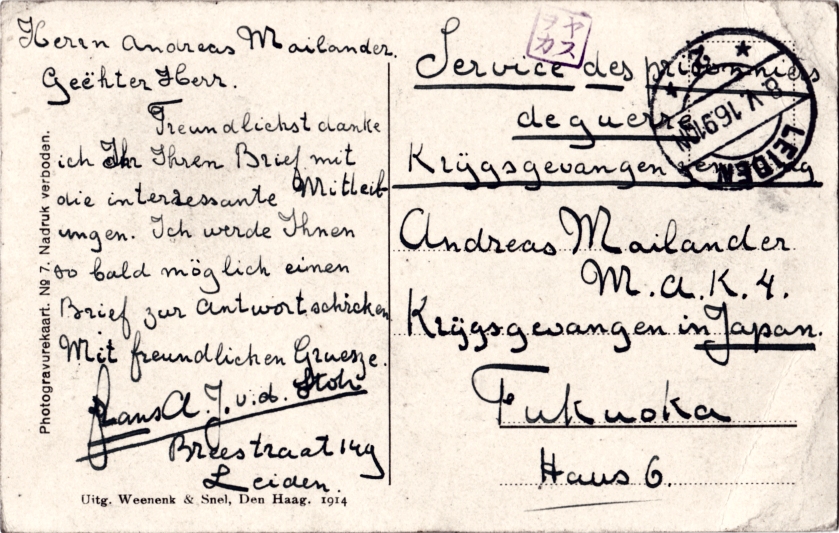 Herrn Andreas Mailander.
Geëhter Herr.
Freundlichst danke
ich Ihr Ihren Brief mit
die interessante Mitteil-
ungen. Ich werde Ihnen
so bald möglich einen
Brief zur Antwort schicken
Mit freundlichen Gruesze.
Hans A. J. v. d. Stok
Breestraat 149
Leiden.
Uitg. Weenenk & Snel, Den Haag. 1914
Photogravurekaart. № 7. Nadruk verboden.
ヤス
ヲカ
Service des prisonniers
de guerre
Krijgsgevangen
LEIDEN
8.V.16.9
Andreas Mailander
M.A.K.4.
Krijgsgevangen in Japan.
Fukuoka
Haus 6.